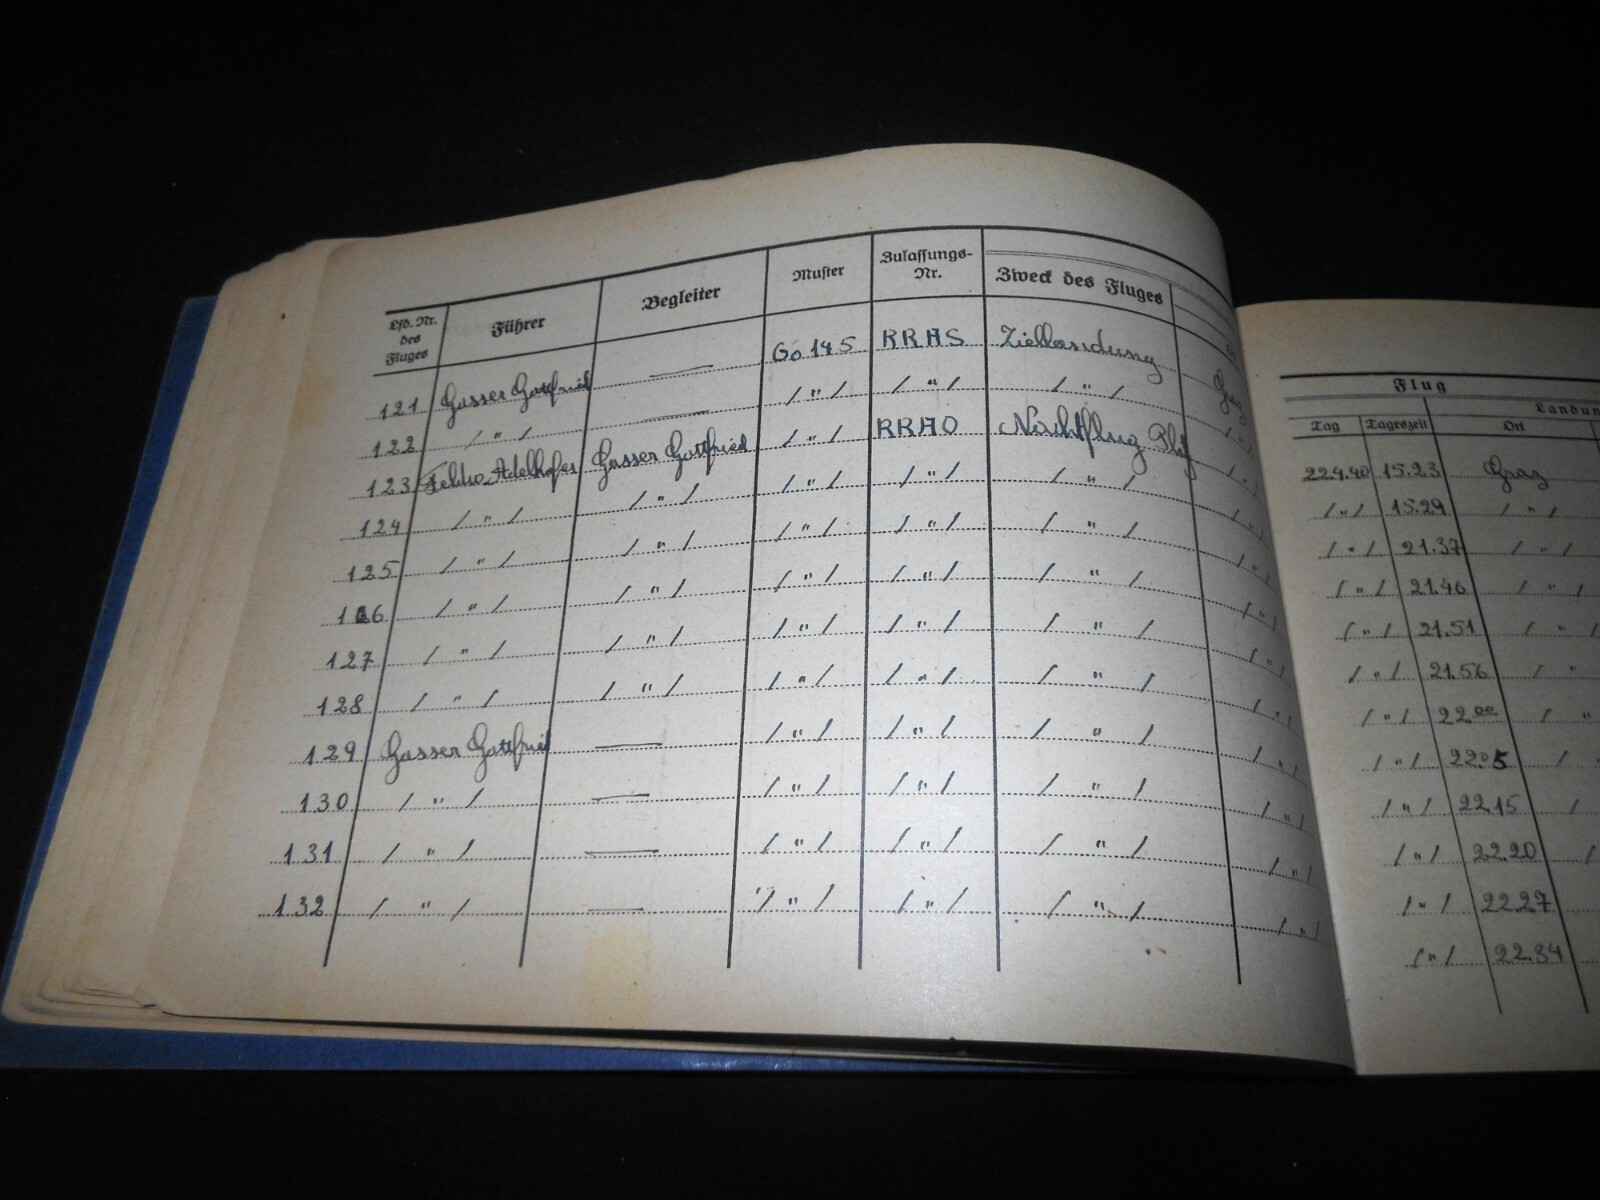 Lfd. Nr. des Fluges Führer Begleiter Muster Zulassungs-Nr. Zweck des Fluges
121 Gasser Gottfried — Go 145 RRAS Ziellandung Graz
122 / " / — / " / / " / / " / / " /
123 Feldw. Adelhofer Gasser Gottfried / " / RRAO Nachtflug Plz / " /
124 / " / / " / / " / / " / / " / / " /
125 / " / / " / / " / / " / / " / / " /
126 / " / / " / / " / / " / / " / / " /
127 / " / / " / / " / / " / / " / / " /
128 / " / / " / / " / / " / / " / / " /
129 Gasser Gottfried — / " / / " / / " / / " /
130 / " / — / " / / " / / " / / " /
131 / " / — / " / / " / / " / / " /
132 / " / — / " / / " / / " / / " /
Flug
Landun
Tag Tageszeit Ort
22.4.40 15.23 Graz
/ " / 15.29 / " /
/ " / 21.37 / " /
/ " / 21.46 / " /
/ " / 21.51 / " /
/ " / 21.56 / "
/ " / 22.00 / "
/ " / 22.05 /
/ " / 22.15 /
/ " / 22.20 /
/ " / 22.27
/ " / 22.34